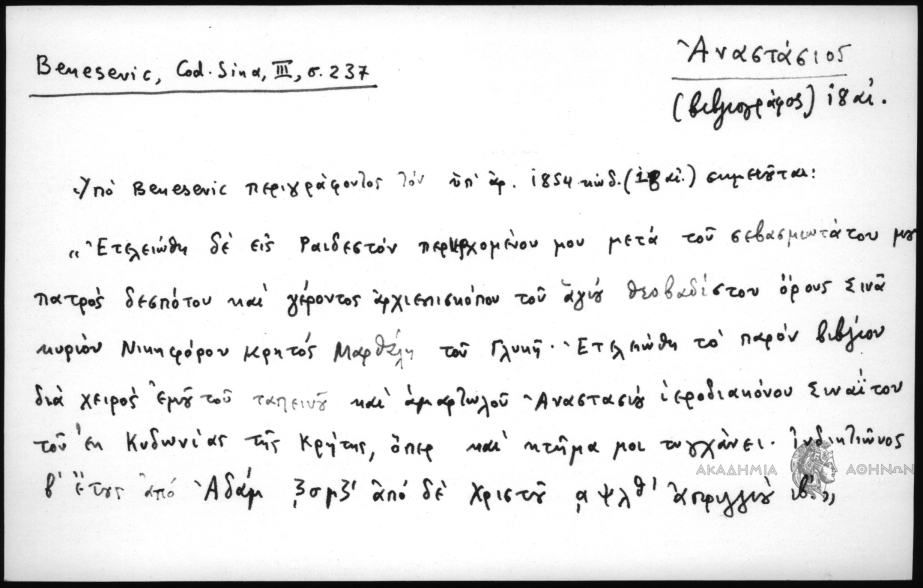 Benesevic, Cod. Sina, III, σ. 237
Ἀναστάσιος
(βιβλιογράφος) ιη αἰ.
Ὑπό Benesevic περιγράφοντος τόν ὑπ' ἀρ. 1854 κώδ. (18 αἰ.) σημειοῦται:
„Ἐτελειώθη δέ εἰς Ραιδεστόν περιερχομένου μου μετά τοῦ σεβασμιωτάτου μου
πατρός δεσπότου καί γέροντος ἀρχιεπισκόπου τοῦ ἁγίου θεοβαδίστου ὄρους Σινᾶ
κυρίου Νικηφόρου κρητός Μαρθάλη τοῦ Γλυκῆ. Ἐτελειώθη τό παρόν βιβλίον
διά χειρός ἐμοῦ τοῦ ταπεινοῦ καί ἁμαρτωλοῦ Ἀναστασίου ἱεροδιακόνου Σιναΐτου
τοῦ ἐκ Κυδωνίας τῆς Κρήτης, ὅπερ καί κτῆμα μοι τυγχάνει. Ἰνδικτιῶνος
β' ἔτους ἀπό Ἀδάμ ͵ζσμζ' ἀπό δέ Χριστοῦ ͵αψλθ' ἀπριλλίου ιβ'.„
ΑΚΑΔΗΜΙΑ ΑΘΗΝΩΝ